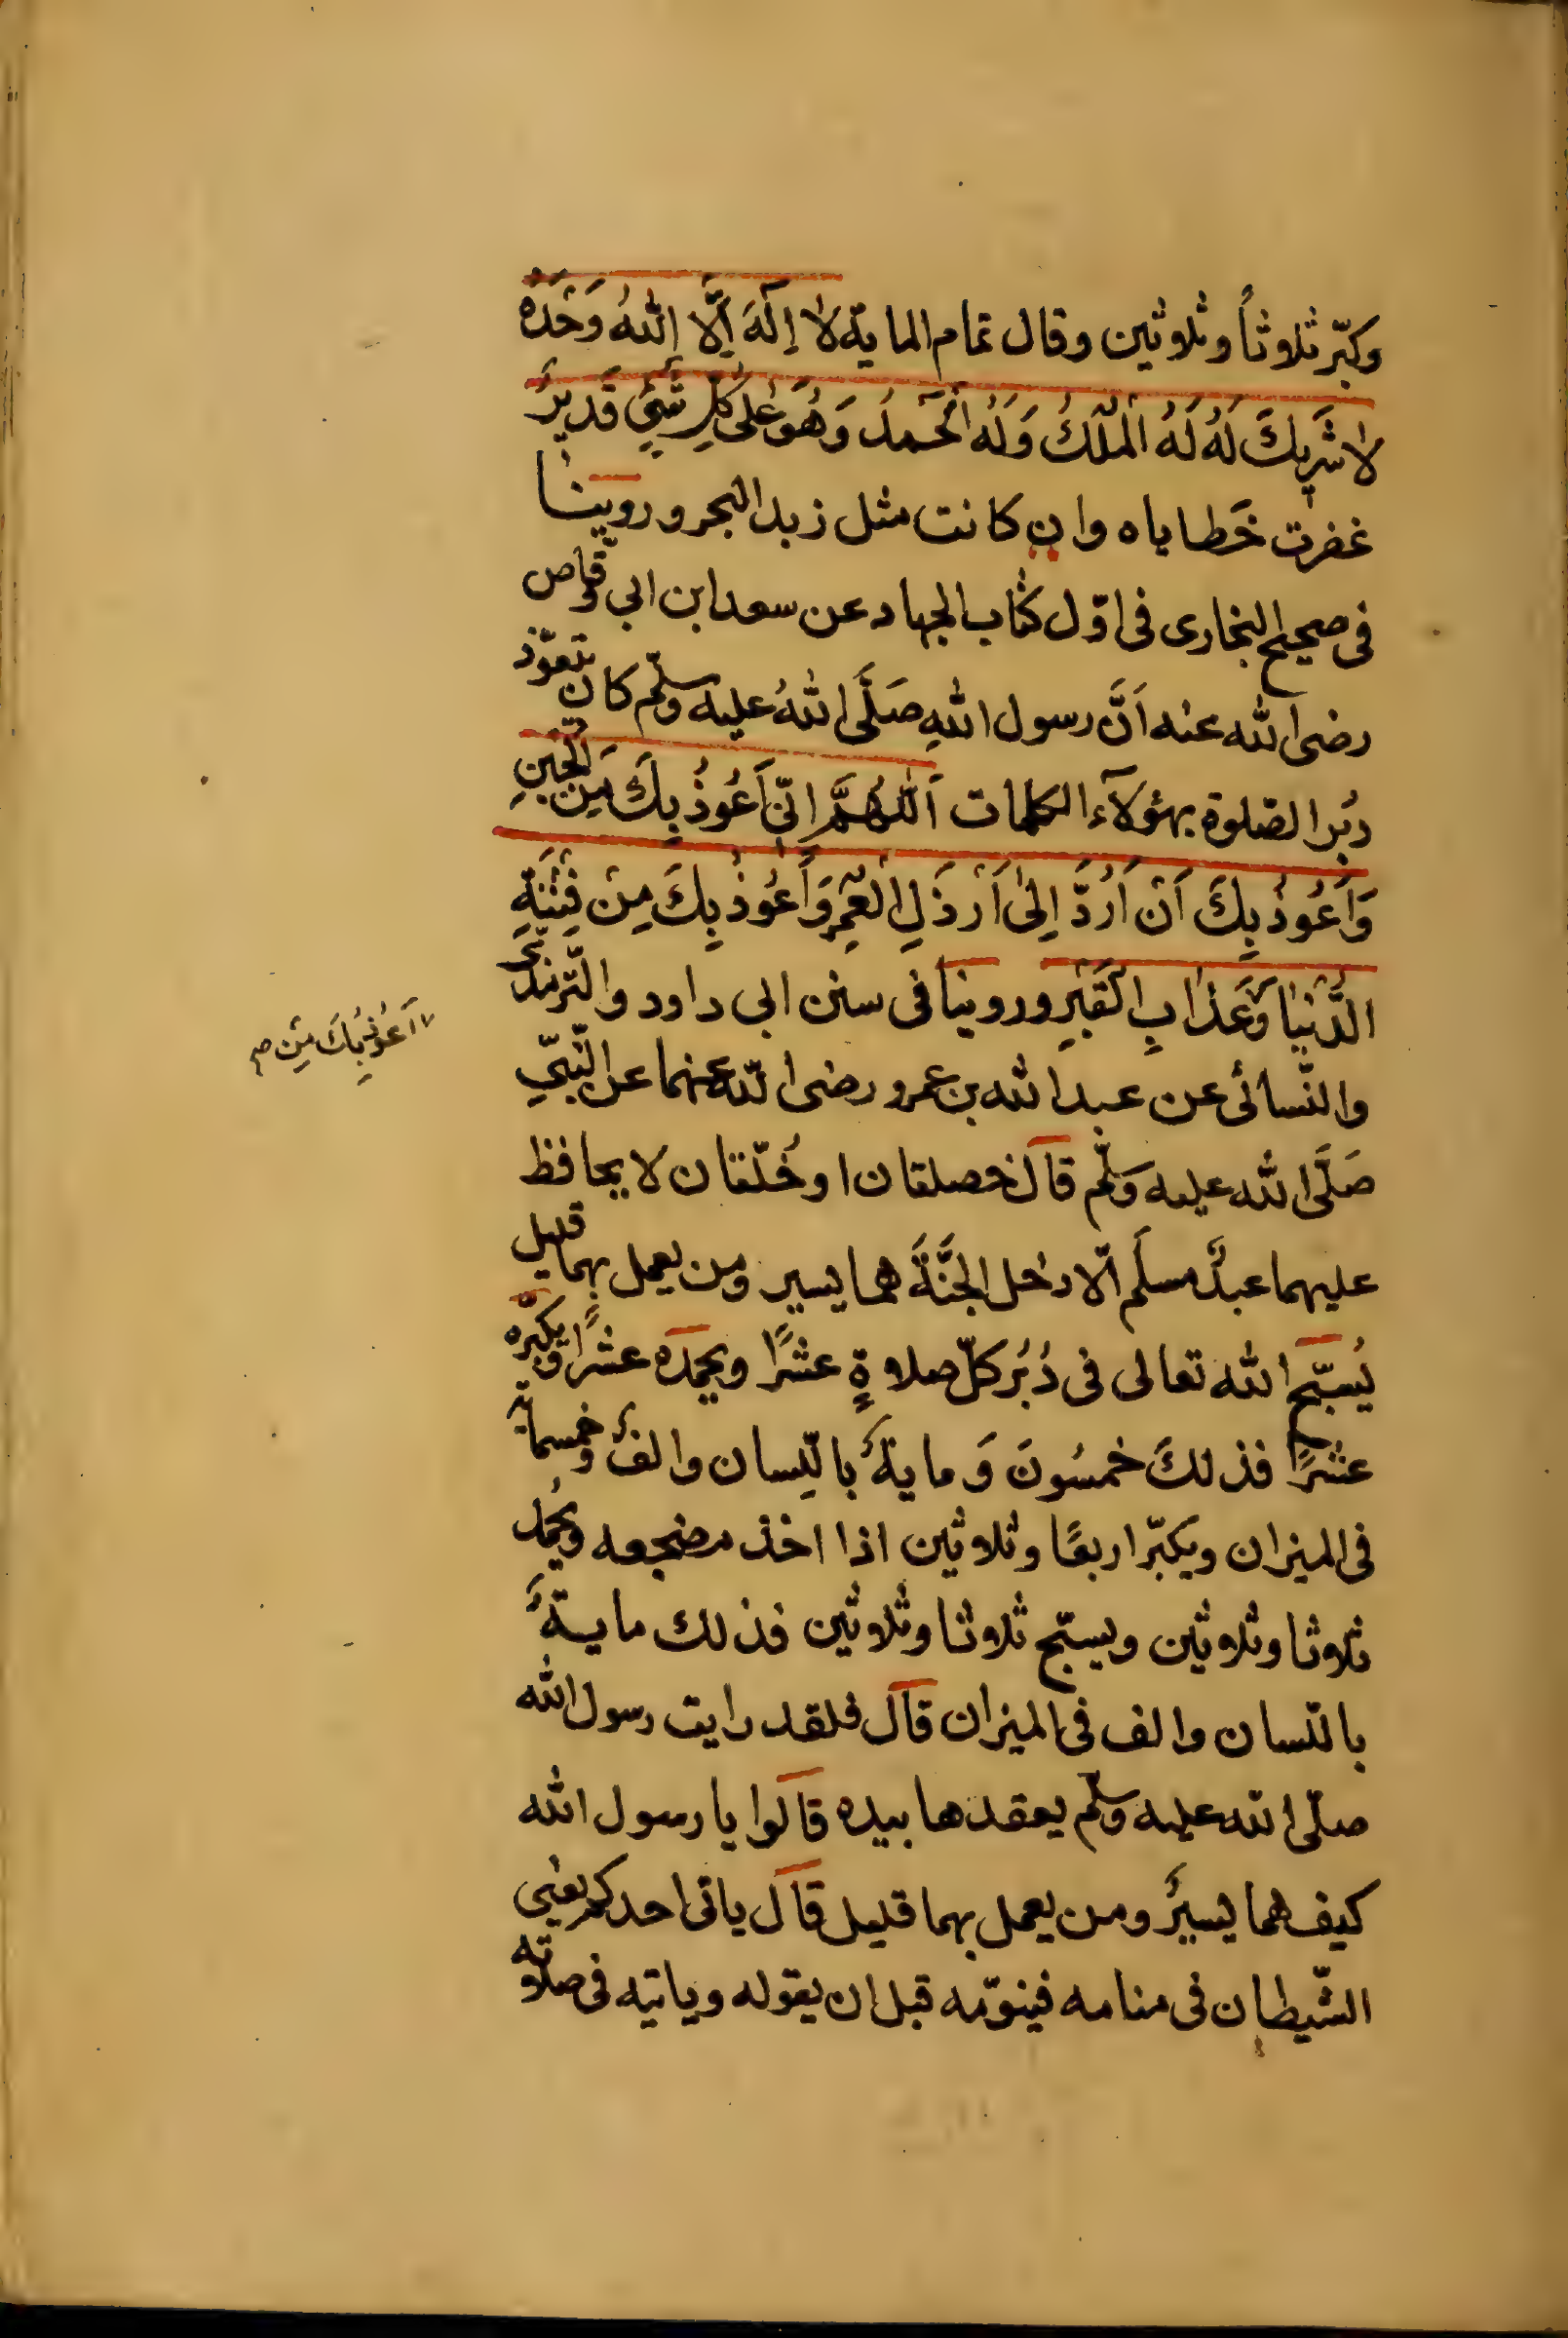 وكبّر ثلاوثاً وثلاوثين وقال تمام الماية لا إلَهَ إلَّا اللهُ وَحْدَهُ
لا شَرِيكَ لَهُ لَهُ الْمُلْكُ وَلَهُ الْحَمدُ وَهُوَ عَلى كُلِّ شَيْئٍ قَدِيرٌ
غفرت خَطاياه وان كانت مثل زبد البحر وروينا
فى صحيح البخارى فى اوّل كتاب الجهاد عن سعد ابن ابى وقّاص
رضى الله عنه اَنَّ رسول اللهِ صَلَّى اللهُ عليه وسلّم كان يتعوّذ
دُبُر الصّلوة بهؤلآء الكلمات اَللّهُمَّ اِنّى اَعُوذُ بِكَ مِنَ الْجُبْنِ
وَاَعُوذُ بِكَ اَنْ اَرُدَّ اِلىٰ اَرْذَلِ الْعُمِرِ وَاَعُوذُ بِكَ مِنْ فِتْنَةِ
الدُّنْيٰا وَعَذٰابِ الْقَبْرِ وروينا فى سنن ابى داود والتّرمذىّ
٧ اَعُوذُ بِكَ مِنْ صح
والنّسائى عن عبد الله بن عمرو رضى الله عنهما عن النّبىّ
صَلَّى الله عليه وسلّم قال خصلتان او خُلّتان لا يحافظ
عليهما عبدٌ مسلم الّا دخل الجَنَّةَ هما يسير ومن يعمل بهما قليل
يُسبّح الله تعالى فى دُبُر كلّ صلاوةٍ عشرًا ويحمده عشرًا ويكبّره
عشرًا فذلكَ خمسُونَ وَمايةٌ بالّلسان والفٌ وخمسماية
فى الميزان ويكبّر اربعًا وثلاوثين اذا اخذ مضجعه ويَحْمَد
ثلاوثا وثلاوثين ويسبّح ثلاوثا وثلاوثين فذلك مايةٌ
باللّسان والف فى الميزان قال فلقد رايت رسول الله
صلّى الله عليه وسلّم يعقدها بيده قالوا يا رسول الله
كيف هما يسيرٌ ومن يعمل بهما قليل قال ياتى احدكم يعنى
الشّيطان فى منامه فينوّمه قبل ان يقوله وياتيه فى صلاوته